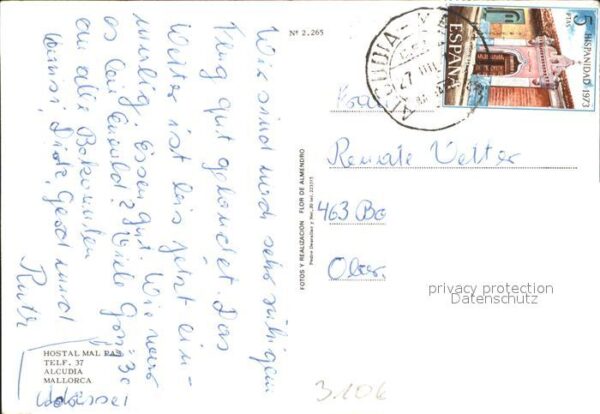 Wir sind nach sehr ruhigem
Flug gut gelandet. Das
Wetter ist bis jetzt ein-
malig. Essen gut. Wie
es bei Viele Grüße
an alle Bekannten
Gerd und
Ruth
HOSTAL MAL PAS
TELF. 37
ALCUDIA
MALLORCA
Nº 2.265
FOTOS Y REALIZACION FLOR DE ALMENDRO
ALCUDIA
27
5
PTAS
HISPANIDAD 1973
ESPAÑA
Renate Vetter
463 Bo
privacy protection
Datenschutz
3.106